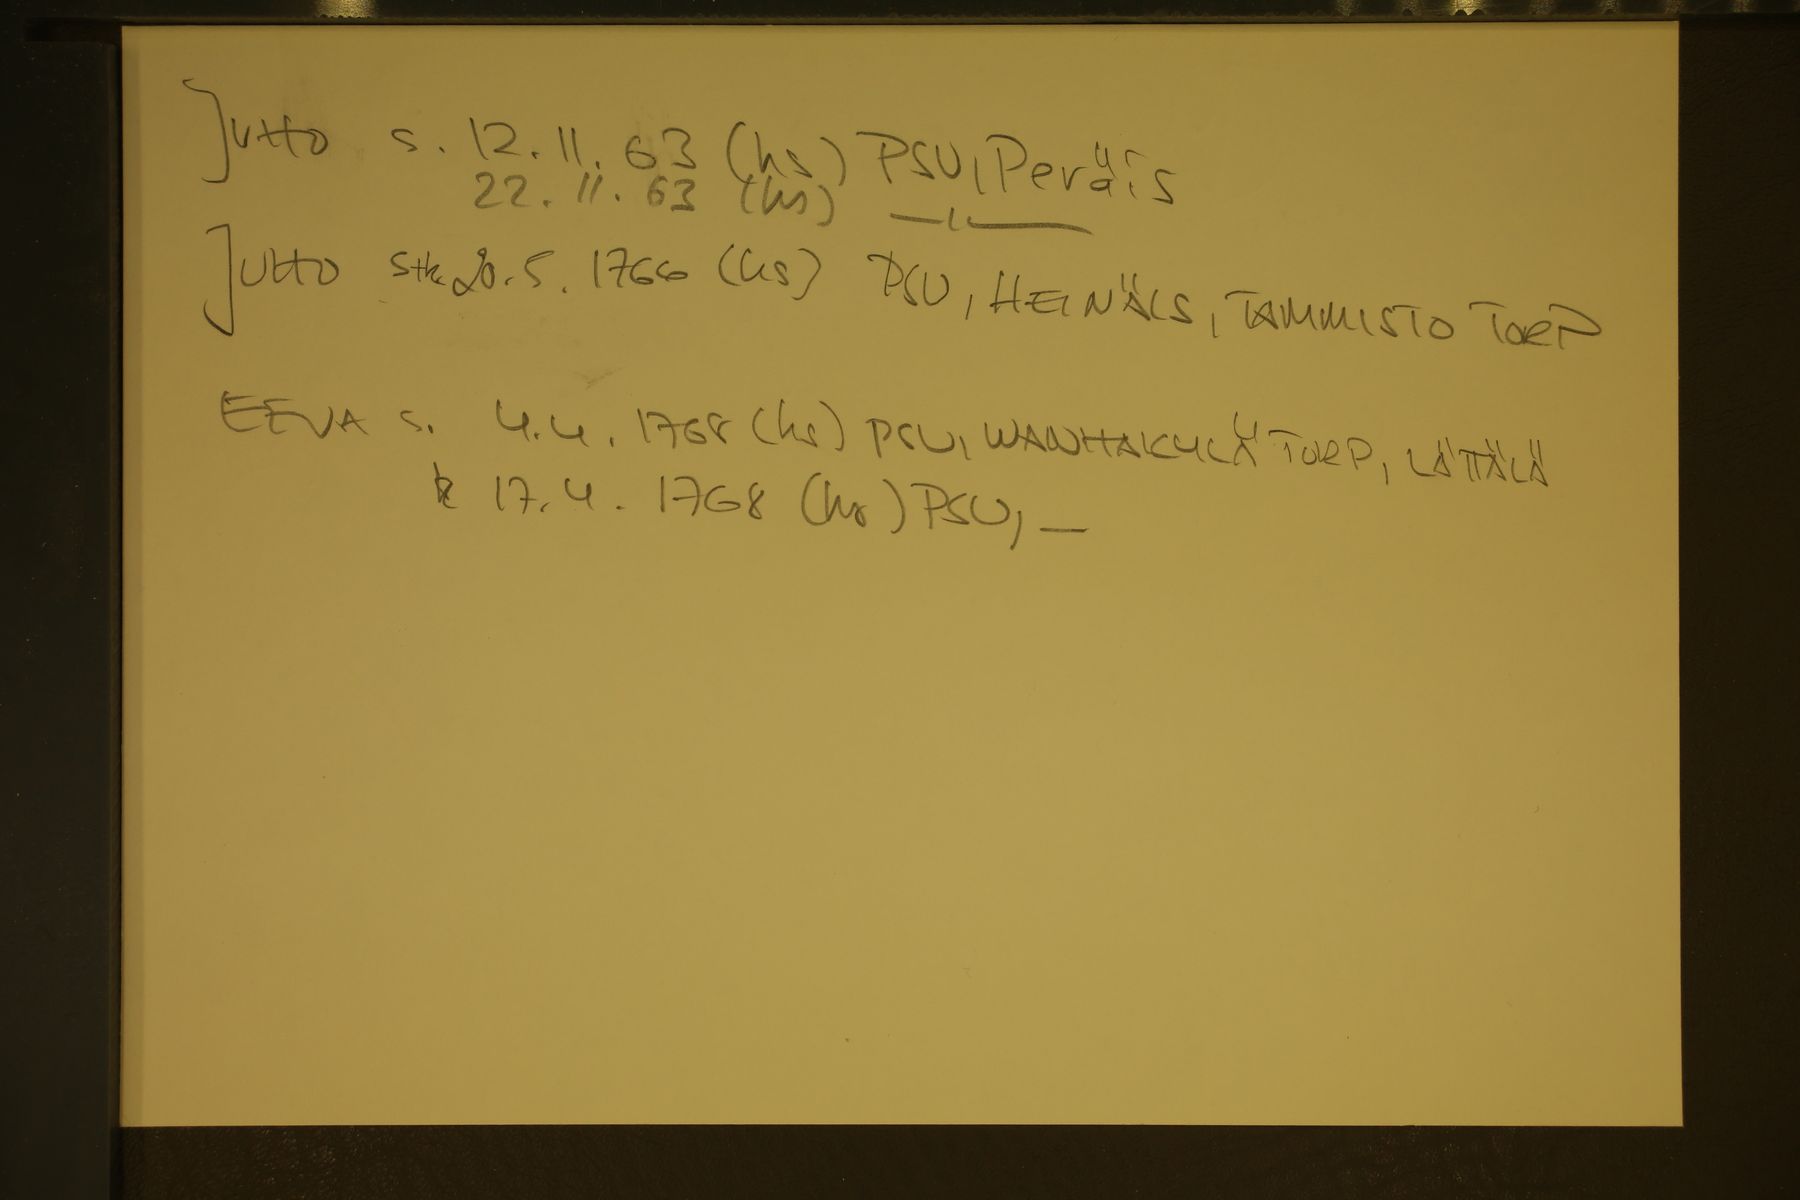 Jutto s. 12.11.63 (hs) PSU, Peräis
22.11.63 (hs) —"—
Jutto stk 20.5.1766 (hs) PSU, HEINÄLS, TAMMISTO TORP
EEVA s. 4.4.1768 (hs) PSU, WANHAKYLÄ TORP, LÄTTÄLÄ
k 17.4.1768 (hs) PSU, —